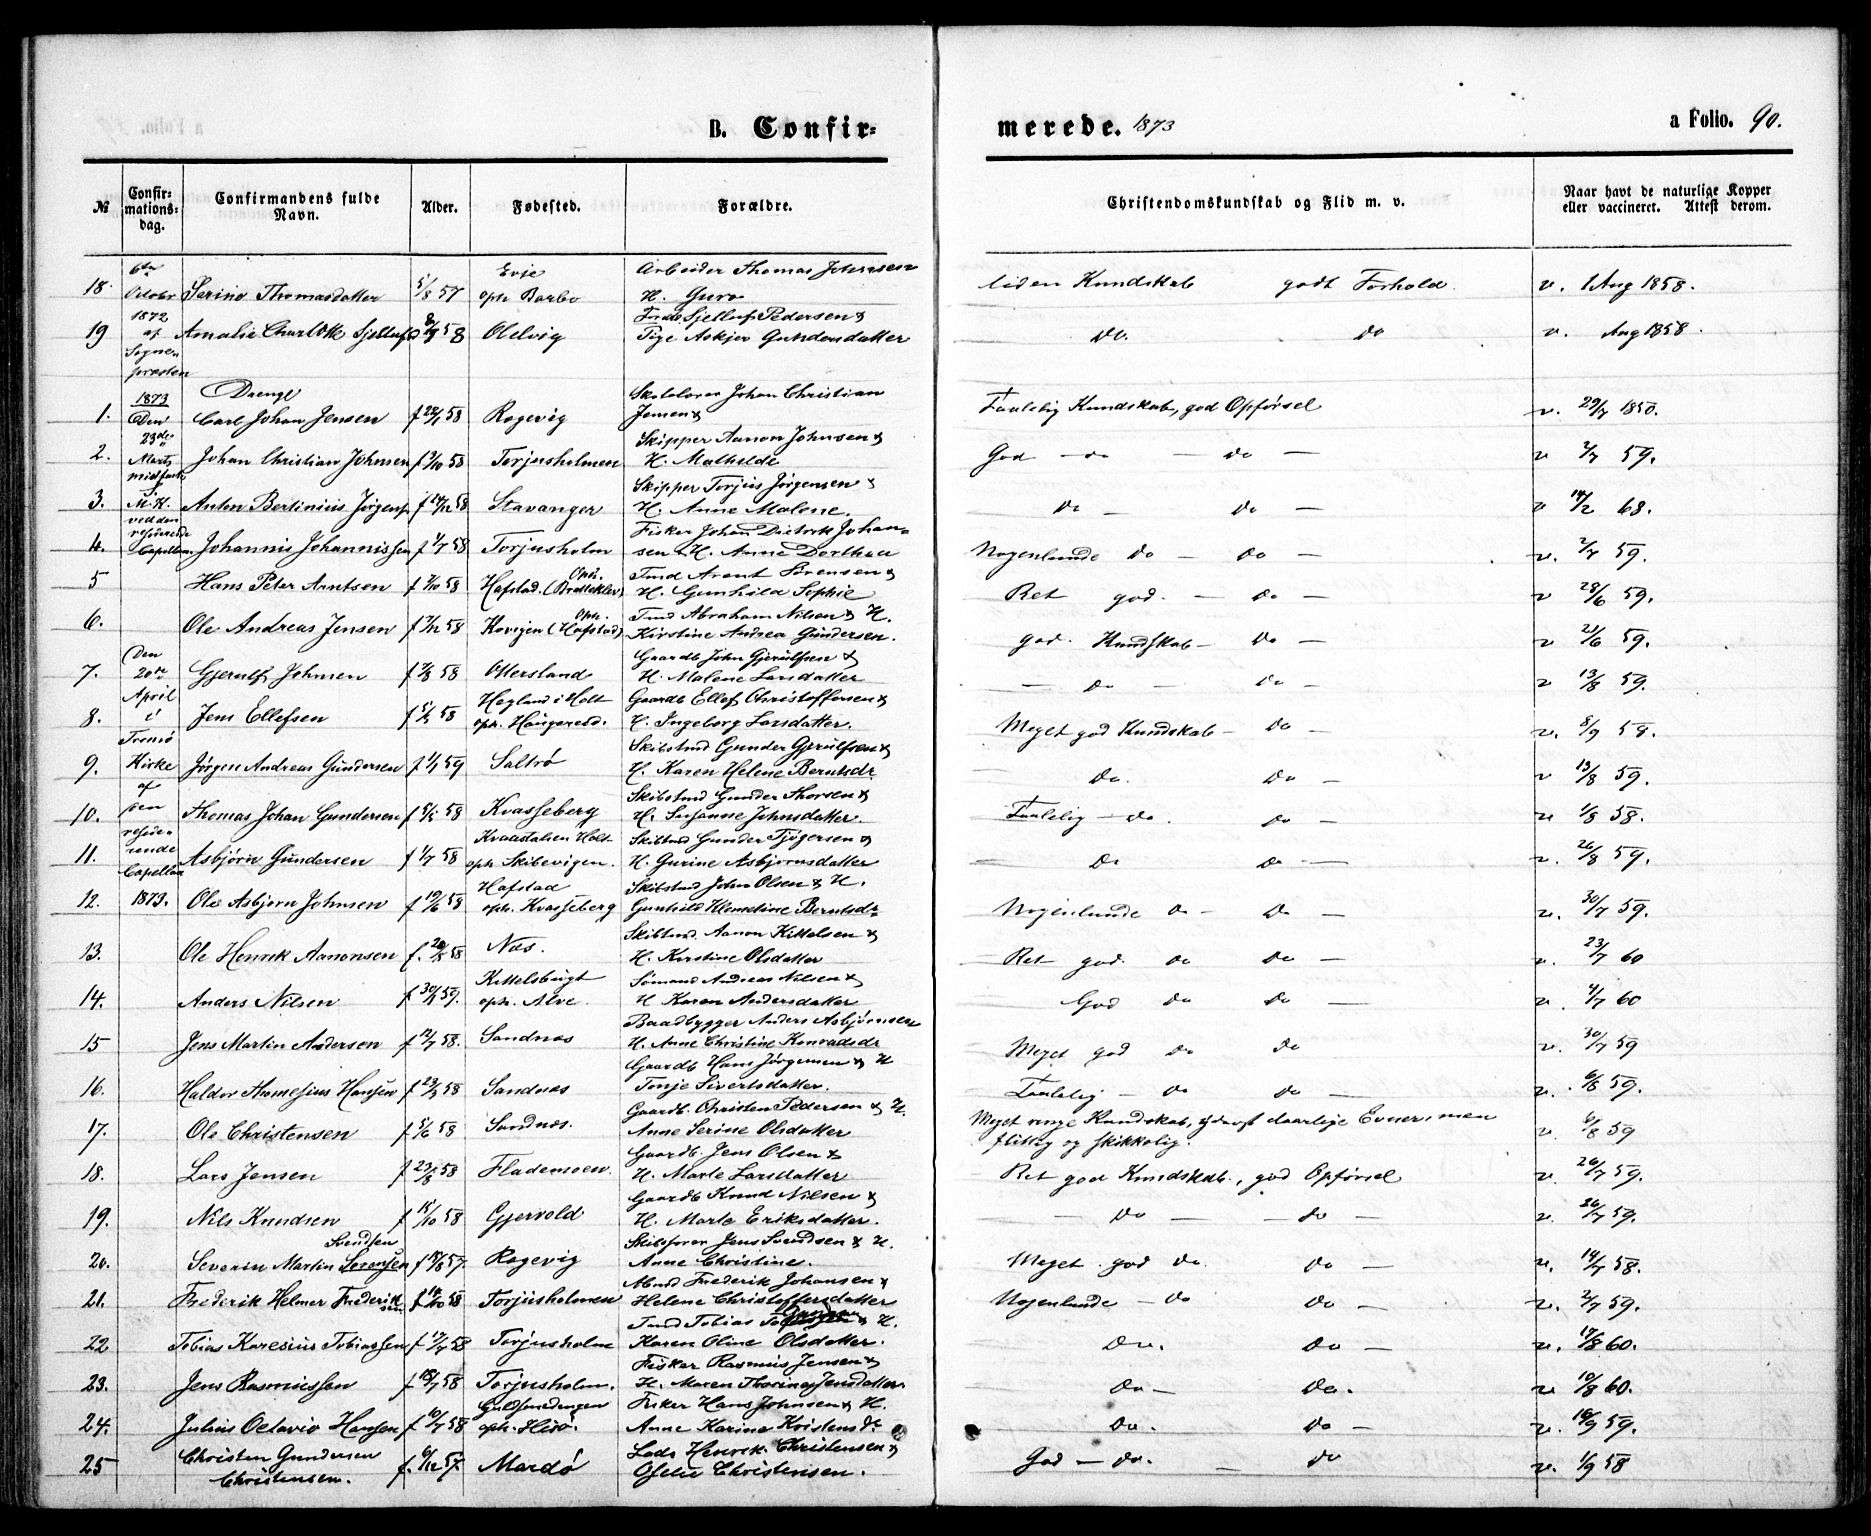 B. Confir=
merede. 1873
a Folio. 90.
№
Confir=
mations=
dag.
Confirmandens fulde
Navn.
Alder.
Fødested.
Forældre.
Christendomskundskab og Flid m. v.
Naar havt de naturlige Kopper
eller vaccineret. Attest derom.
18. 6te October Serine Thomasdatter 5/8 57 Evje oph. Barbo Arbeider Thomas Johnsen H. Guro liden Kundskab godt Forhold. v. 1 Aug 1858.
19 1872 af Sogne præsten Amalie Charlotte 58 Olelvig Pedersen & Pige Askjer Gundersdatter Do. Do v. Aug 1858.
1873 Drenge
1. Den 23de Carl Johan Jensen Rægevig Johan Christian Jensen & Taalelig Kundskab, god Opførsel v. 29/7 1850.
2. Marts Johan Christian Johnsen f 9/10 58 Torjusholmen Skipper Aanon Johnsen & H. Mathilde God - do - do - v 2/7 59.
3. M.K. Anton Bertinius f 58 Stavanger Skipper Torjus Jørgensen & H. Anne Malene. Do - Do - v 68.
4. ved den residerende Capellan Johannis Johannissen 58 Torjusholm Fisker Johan Diedrik Johan=sen & H. Anne Dorthea Nogenlunde Do - Do - v. 2/7 59.
5 Hans Peter Arntsen f 7/10 58 Hafstad. (Oph. Brattekler) Tmd Arent Sørensen & H. Gunhild Sophie Ret god. - Do - v 28/6 59.
6. Ole Andreas Jensen f 7/12 58 Kovigen (Oph. Hafstad) Tmd Abraham Nilsen & H. Kirstine Andrea Gundersen. god. Kundskab - Do - v 21/6 59.
7. Den 20de Gjerulf Johnsen f 7/8 58 Ottersland Gaardb John Gjerulfsen & H. Malene Larsdatter - Do - Do - v 13/8 59.
8. April i Jens Ellefsen 58 Hegland i Holt oph. Gaardb Ellef Christoffersen & H. Ingeborg Larsdatter. Meget god Kundskab - Do - v. 8/9 58.
9. Tromø Kirke Jørgen Andreas Gundersen 59 Saltrø Skibstmd Gunder Gjerulfsen & H. Karen Helene Berntsdr Do. Do - v 13/8 59.
10. af den Thomas Johan Gundersen 58 Kvasseberg Skibstmd Gunder Thorsen & H. Susanne Johnsdatter Taalelig - Do. Do - v 1/8 58.
11. residerende Capellan Asbjørn Gundersen f 1/7 58 Holt oph Skibevigen. Skibtmd Gunder & H. Gurine Asbjørnsdatter Do Do - v. 26/8 59.
12. 1873. Ole Asbjørn Johnsen f 19/6 58 Hafstad oph. Kvasseberg Skibstmd John Olsen & H. Gunhild Klemetine Berntsdr Nogenlunde Do - Do - v. 30/7 59.
13. Ole Henrik Aanonsen 58 Næs. Skibtmd. Aanon Kittelsen & H. Kirstine Olsdatter Ret god. Do Do - v. 23/7 60
14. Anders Nilsen 59. Kittelsbugt oph. Alve. Sømand Andreas Nilsen & H Karen Andersdatter God Do Do - v. 4/7 60
15 Jens Martin Andersen f 12/7 58. Sandnæs Baadbygger Anders Asbjørnsen H. Anne Christine Konradsdr Meget god Do Do v. 30/7 59
16. Haldor Hansen 58 Sandnæs Gaardb Hans Jørgensen & H Tonje Sivertsdatter. Taalelig - Do Do - v. 6/8 59.
17. Ole Christensen f 5/6 58 Sandnæs. Gaardb. Christen Pedersen & H. Anne Serine Olsdatter Meget ringe Kundskab, daarlige Evner, men flittig og skikkelig. v. 6/8 59
18. Lars Jensen f 23/8 58 Flademoen Gaardb. Jens Olsen & H. Marte Larsdatter Ret god Kundskab., god Opførsel v. 26/7 59.
19. Nils Knudsen f 15/10 58 Gjervold Gaardb Knud Nilsen & H. Marte Eriksdatter. - Do - - do - v. 26/7 59.
20. Severin Martin Svendsen Sørensen f 18/8 57. Rægevig Skibsfører Jens Svendsen & H. Anne Christine. Meget god Do. Do - v. 14/7 58.
21. Frederik Helmer Frederiksen f 14/10 58 Torjusholmen Frederik Johansen & Helene Christoffersdatter Nogenlunde - Do Do - v. 2/7 59.
22 Tobias Karesius Tobiassen f 17/7 58 Torjusholm Tmd Tobias & H. Karen Oline Olsdatter. Do. Do - v. 17/8 60.
23. Jens Rasmussen f 18/7 58 Torjusholm. Fisker Rasmus Jensen & H. Maren Jensdatter. Do - Do. v. 10/8 60.
24. Julius Octavio Hansen f 10/7 58 Guldsmedengen oph. Hisø. Fisker Hans Johnsen & H. Anne Karine Kristensdr Do. Do - v. 16/9 59.
25 Christen Gundersen Christensen. f. 6/12 57. Mærdø Lods Henrik Christensen & Ofelie Christensen. God - Do. - Do v. 1/9 58